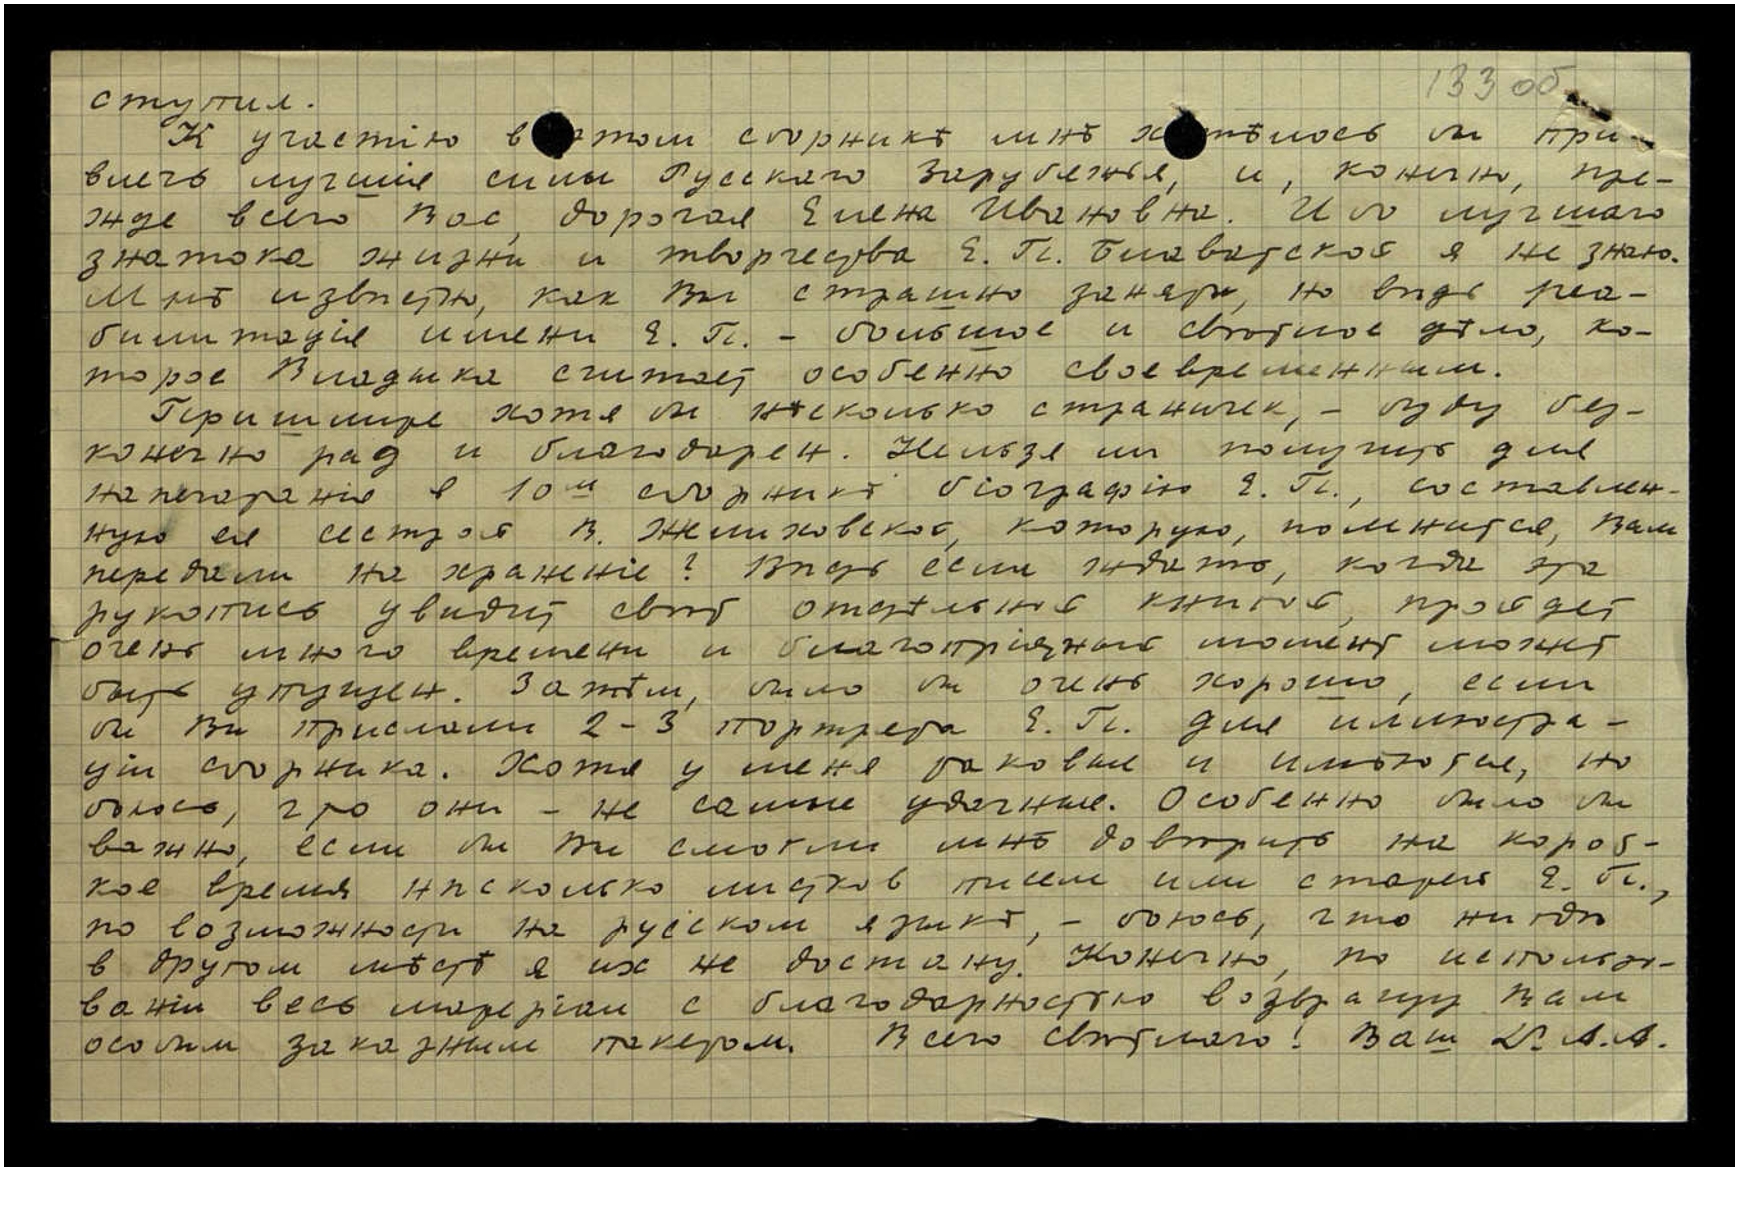 133 об
ступил.
К участію в этом сборникѣ мнѣ хотѣлось бы при-
влечь лучшія силы Русскаго Зарубежья, и, конечно, пре-
жде всего Вас, дорогая Елена Ивановна. Ибо лучшаго
знатока жизни и творчества Е. П. Блаватской я не знаю.
Мнѣ извѣстно, как Вы страшно заняты, но вѣдь реа-
билитація имени Е. П. - большое и свѣтлое дѣло, ко-
торое Владыка считает особенно своевременным.
Пришлите хотя бы нѣсколько страничек, - буду без-
конечно рад и благодарен. Нельзя ли получить для
напечатанія в 10м сборникѣ біографію Е. П., составлен-
ную ея сестрой В. Желиховской, которую, помнится, Вам
передали на храненіе? Вѣдь если ждать, когда эта
рукопись увидит свѣт отдѣльной книгой, пройдет
очень много времени и благопріятный момент может
быть упущен. Затѣм, было бы очень хорошо, если
бы Вы прислали 2-3 портрета Е. П. для иллюстра-
ціи сборника. Хотя у меня таковые и имѣются, но
боюсь, что они - не самые удачные. Особенно было бы
важно, если бы Вы смогли мнѣ довѣрить на корот-
кое время нѣсколько листков писем или статей Е. П.,
по возможности на русском языкѣ, - боюсь, что нигдѣ
в другом мѣстѣ я их не достану. Конечно, по использо-
ваніи весь матеріал с благодарностью возвращу Вам
особым заказным пакетом. Всего свѣтлаго! Ваш Др. А.А.